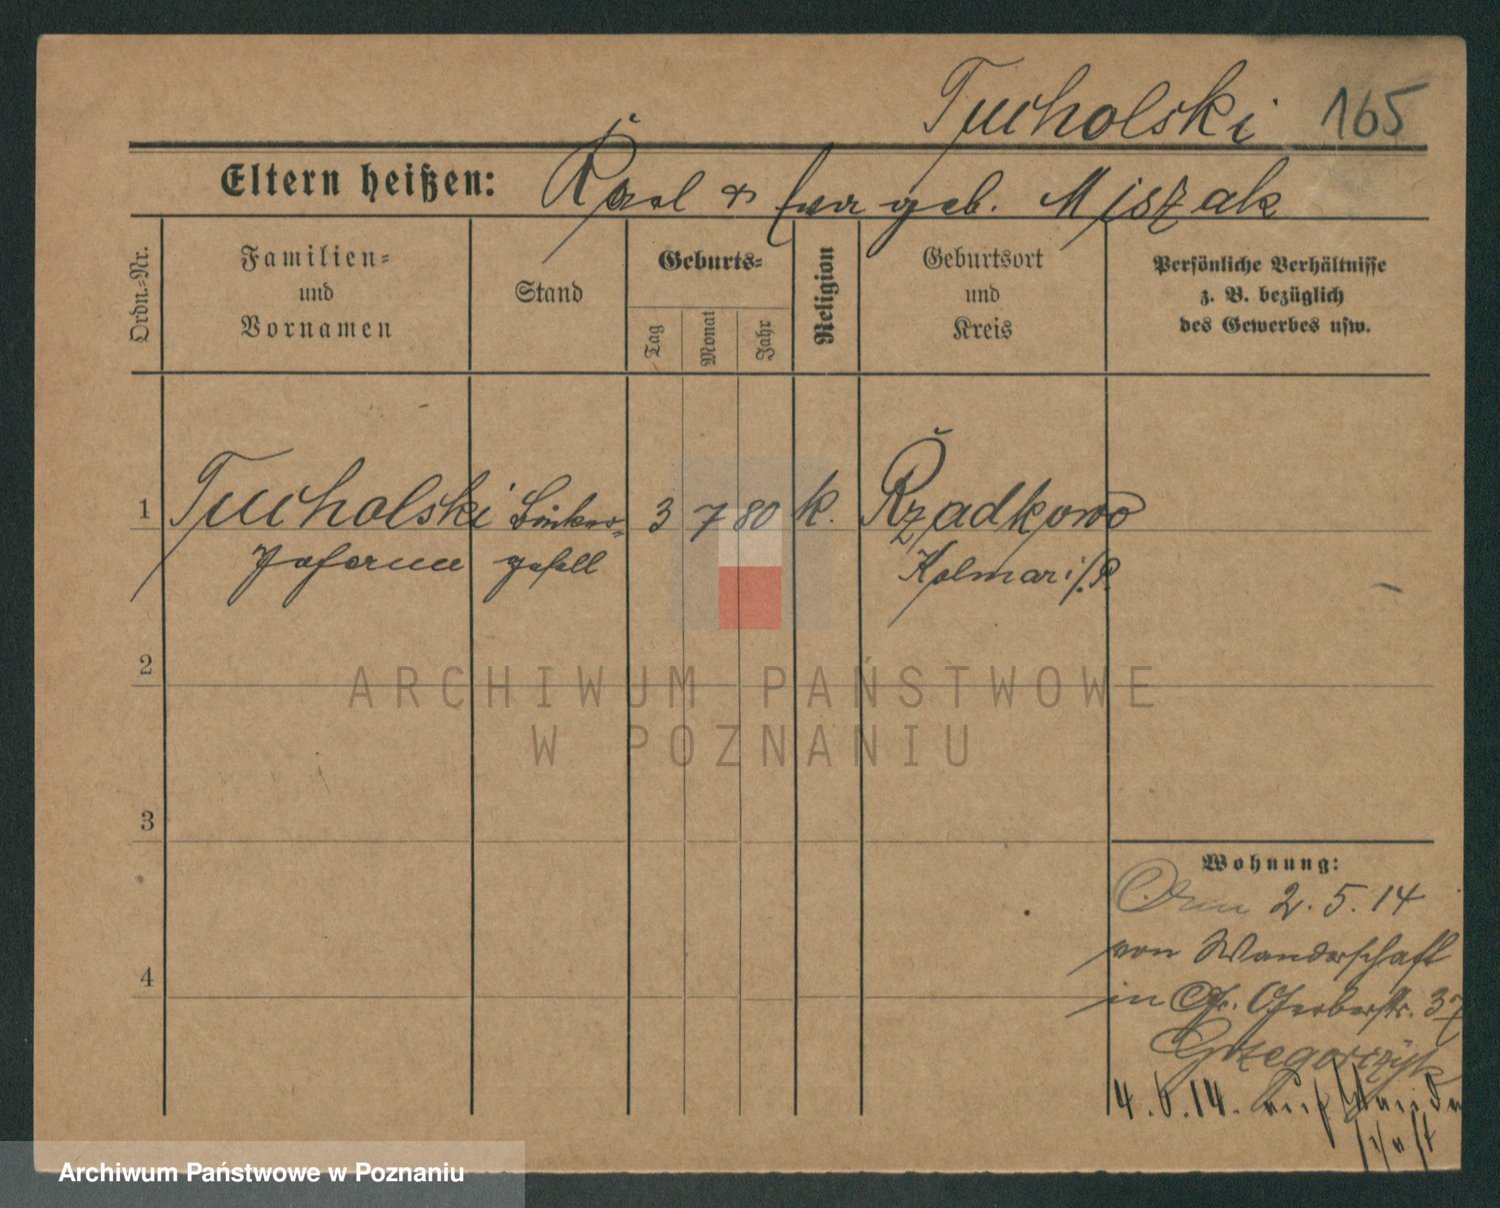 Tucholski 165
Eltern heißen: Karl & Eva geb. Miszak
Ordn.-Nr.
Familien-
und
Vornamen
Stand
Geburts-
Tag
Monat
Jahr
Religion
Geburtsort
und
Kreis
Persönliche Verhältnisse
z. B. bezüglich
des Gewerbes usw.
1 Tucholski 3 7 80 k. Rzadkowo
Johann gesell Kolmar i/P.
2
ARCHIWUM PAŃSTWOWE
W POZNANIU
3
Wohnung:
2. 5. 14
von Wanderschaft
in Gr. Gerberstr. 37
Grzegorczyk
4
14. auf Wander
schaft
Archiwum Państwowe w Poznaniu